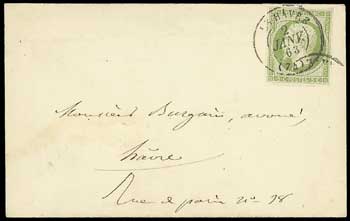 LE HAVRE
1
JANV.
63
(74)
Monsieur Burgain, avoué,
hâvre
Rue de paris no 98